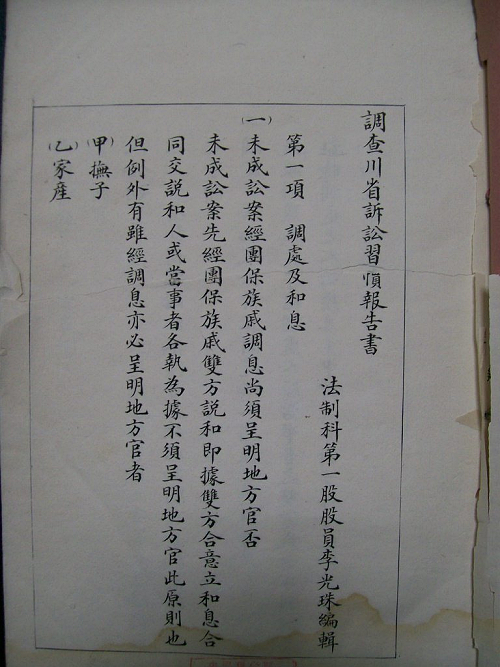 調查川省訴訟習慣報告書
法制科第一股股員李光珠編輯
第一項　調處及和息
(一)未成訟案經團保族戚調息尚須呈明地方官否
未成訟案先經團保族戚雙方說和即據雙方合意立和息合
同交說和人或當事者各執為據不須呈明地方官此原則也
但例外有雖經調息亦必呈明地方官者
(甲)撫子
(乙)家產